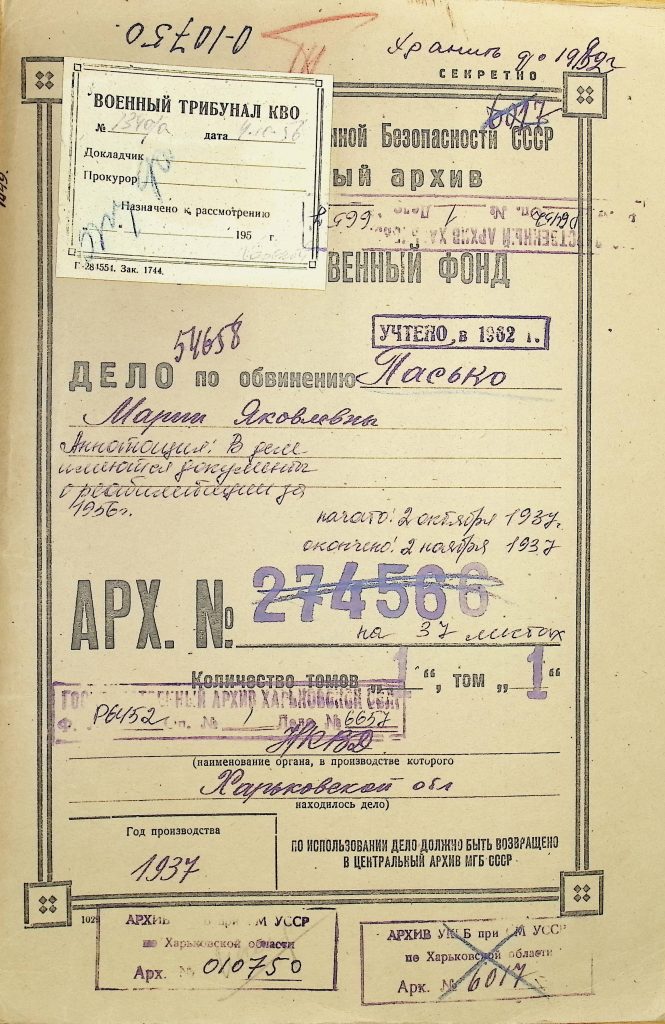 О-10750
Хранить до 1982г
СЕКРЕТНО
6017
ВОЕННЫЙ ТРИБУНАЛ КВО
№ дата
Докладчик
Прокурор
Назначено к рассмотрению
195 г.
Г-284551. Зак. 1744.
нной Безопасности СССР
ый архив
665
Дело 1 Оп. №
СТВЕННЫЙ АРХИВ ХА
ВЕННЫЙ ФОНД
УЧТЕНО в 1962 г.
54658
ДЕЛО по обвинению Пасько
Марии Яковлевны
Аннотация: В деле
имеются документы
о реабилитации за
1956г.
начато: 2 октября 1937.
окончено: 2 ноября 1937
АРХ. № 274566
на 37 листах
Количество томов „1“, том „1“
ГОСУДАРСТВЕННЫЙ АРХИВ ХАРЬКОВСКОЙ ОБЛ
Ф. Р6452 оп. № 1 Дело № 6657
НКВД
(наименование органа, в производстве которого
Харьковской обл
находилось дело)
Год производства
1937
ПО ИСПОЛЬЗОВАНИИ ДЕЛО ДОЛЖНО БЫТЬ ВОЗВРАЩЕНО
В ЦЕНТРАЛЬНЫЙ АРХИВ МГБ СССР
102
АРХИВ при СМ УССР
по Харьковской области
Арх. № 010750
АРХИВ УКГБ при СМ УССР
по Харьковской области
Арх. № 6017